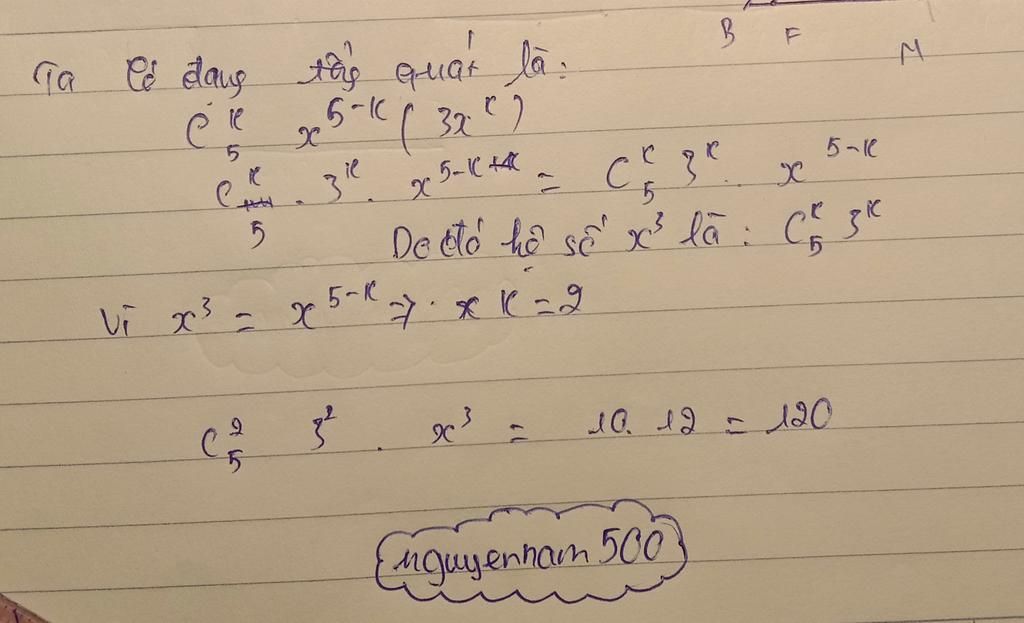 B F M
Ta Có dạng tổng quát là:
C₅ᴷ x⁵⁻ᴷ ( 3xᴷ )
C₅ᴷ . 3ᴷ . x⁵⁻ᴷ = C₅ᴷ 3ᴷ . x⁵⁻ᴷ
Do đó hệ số x³ là : C₅ᴷ 3ᴷ
Vì x³ = x⁵⁻ᴷ => K = 2
C₅² 3² . x³ = 10. 12 = 120
nguyennam 500